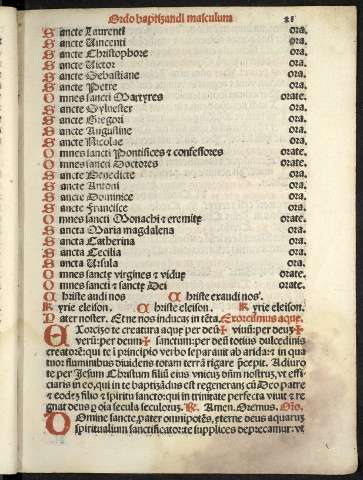 Ordo baptizandi masculum 21
Sancte Laurenti ora.
Sancte Uincenti ora.
Sancte Christophore ora.
Sancte Uictor ora.
Sancte Sebastiane ora.
Sancte Petre ora.
Omnes sancti Martyres orate.
Sancte Syluester ora.
Sancte Gregori ora.
Sancte Augustine ora.
Sancte Nicolae ora.
Omnes sancti Pontifices & confessores orate.
Omnes sancti Doctores orate.
Sancte Benedicte ora.
Sancte Antoni ora.
Sancte Dominice ora.
Sancte Francisce ora.
Omnes sancti Monachi & eremitę orate.
Sancta Maria magdalena ora.
Sancta Catherina ora.
Sancta Cecilia ora.
Sancta Ursula ora.
Omnes sanctę virgines & viduę orate.
Omnes sancti & sanctę Dei orate.
Christe audi nos Christe exaudi nos.
Kyrie eleison. Christe eleison. Kyrie eleison.
Pater noster. Et ne nos inducas in tēta. Exorcismus aque.
EXorcizo te creatura aque per deū ✠ viuū: per deuz ✠
verū: per deum ✠ sanctum: per deū totius dulcedinis
creatorē: qui te ī principio verbo separauit ab arida: & in qua
tuor fluminibus diuidens totam terrā rigare pcepit. Adiuro
te per Jesum Christum filiū eius vnicuz dnm nostruz, vt effi/
ciaris in eo, qui in te baptizādus est regenerans cū Deo patre
& eodez filio & spiritu sancto: qui in trinitate perfecta viuit & re
gnat deus p oīa secula seculoruz. R. Amen. Oremus. Orō.
DOmine sancte, pater omnipotens, eterne deus aquaruz
spiritualium sanctificator: te supplices deprecamur: vt